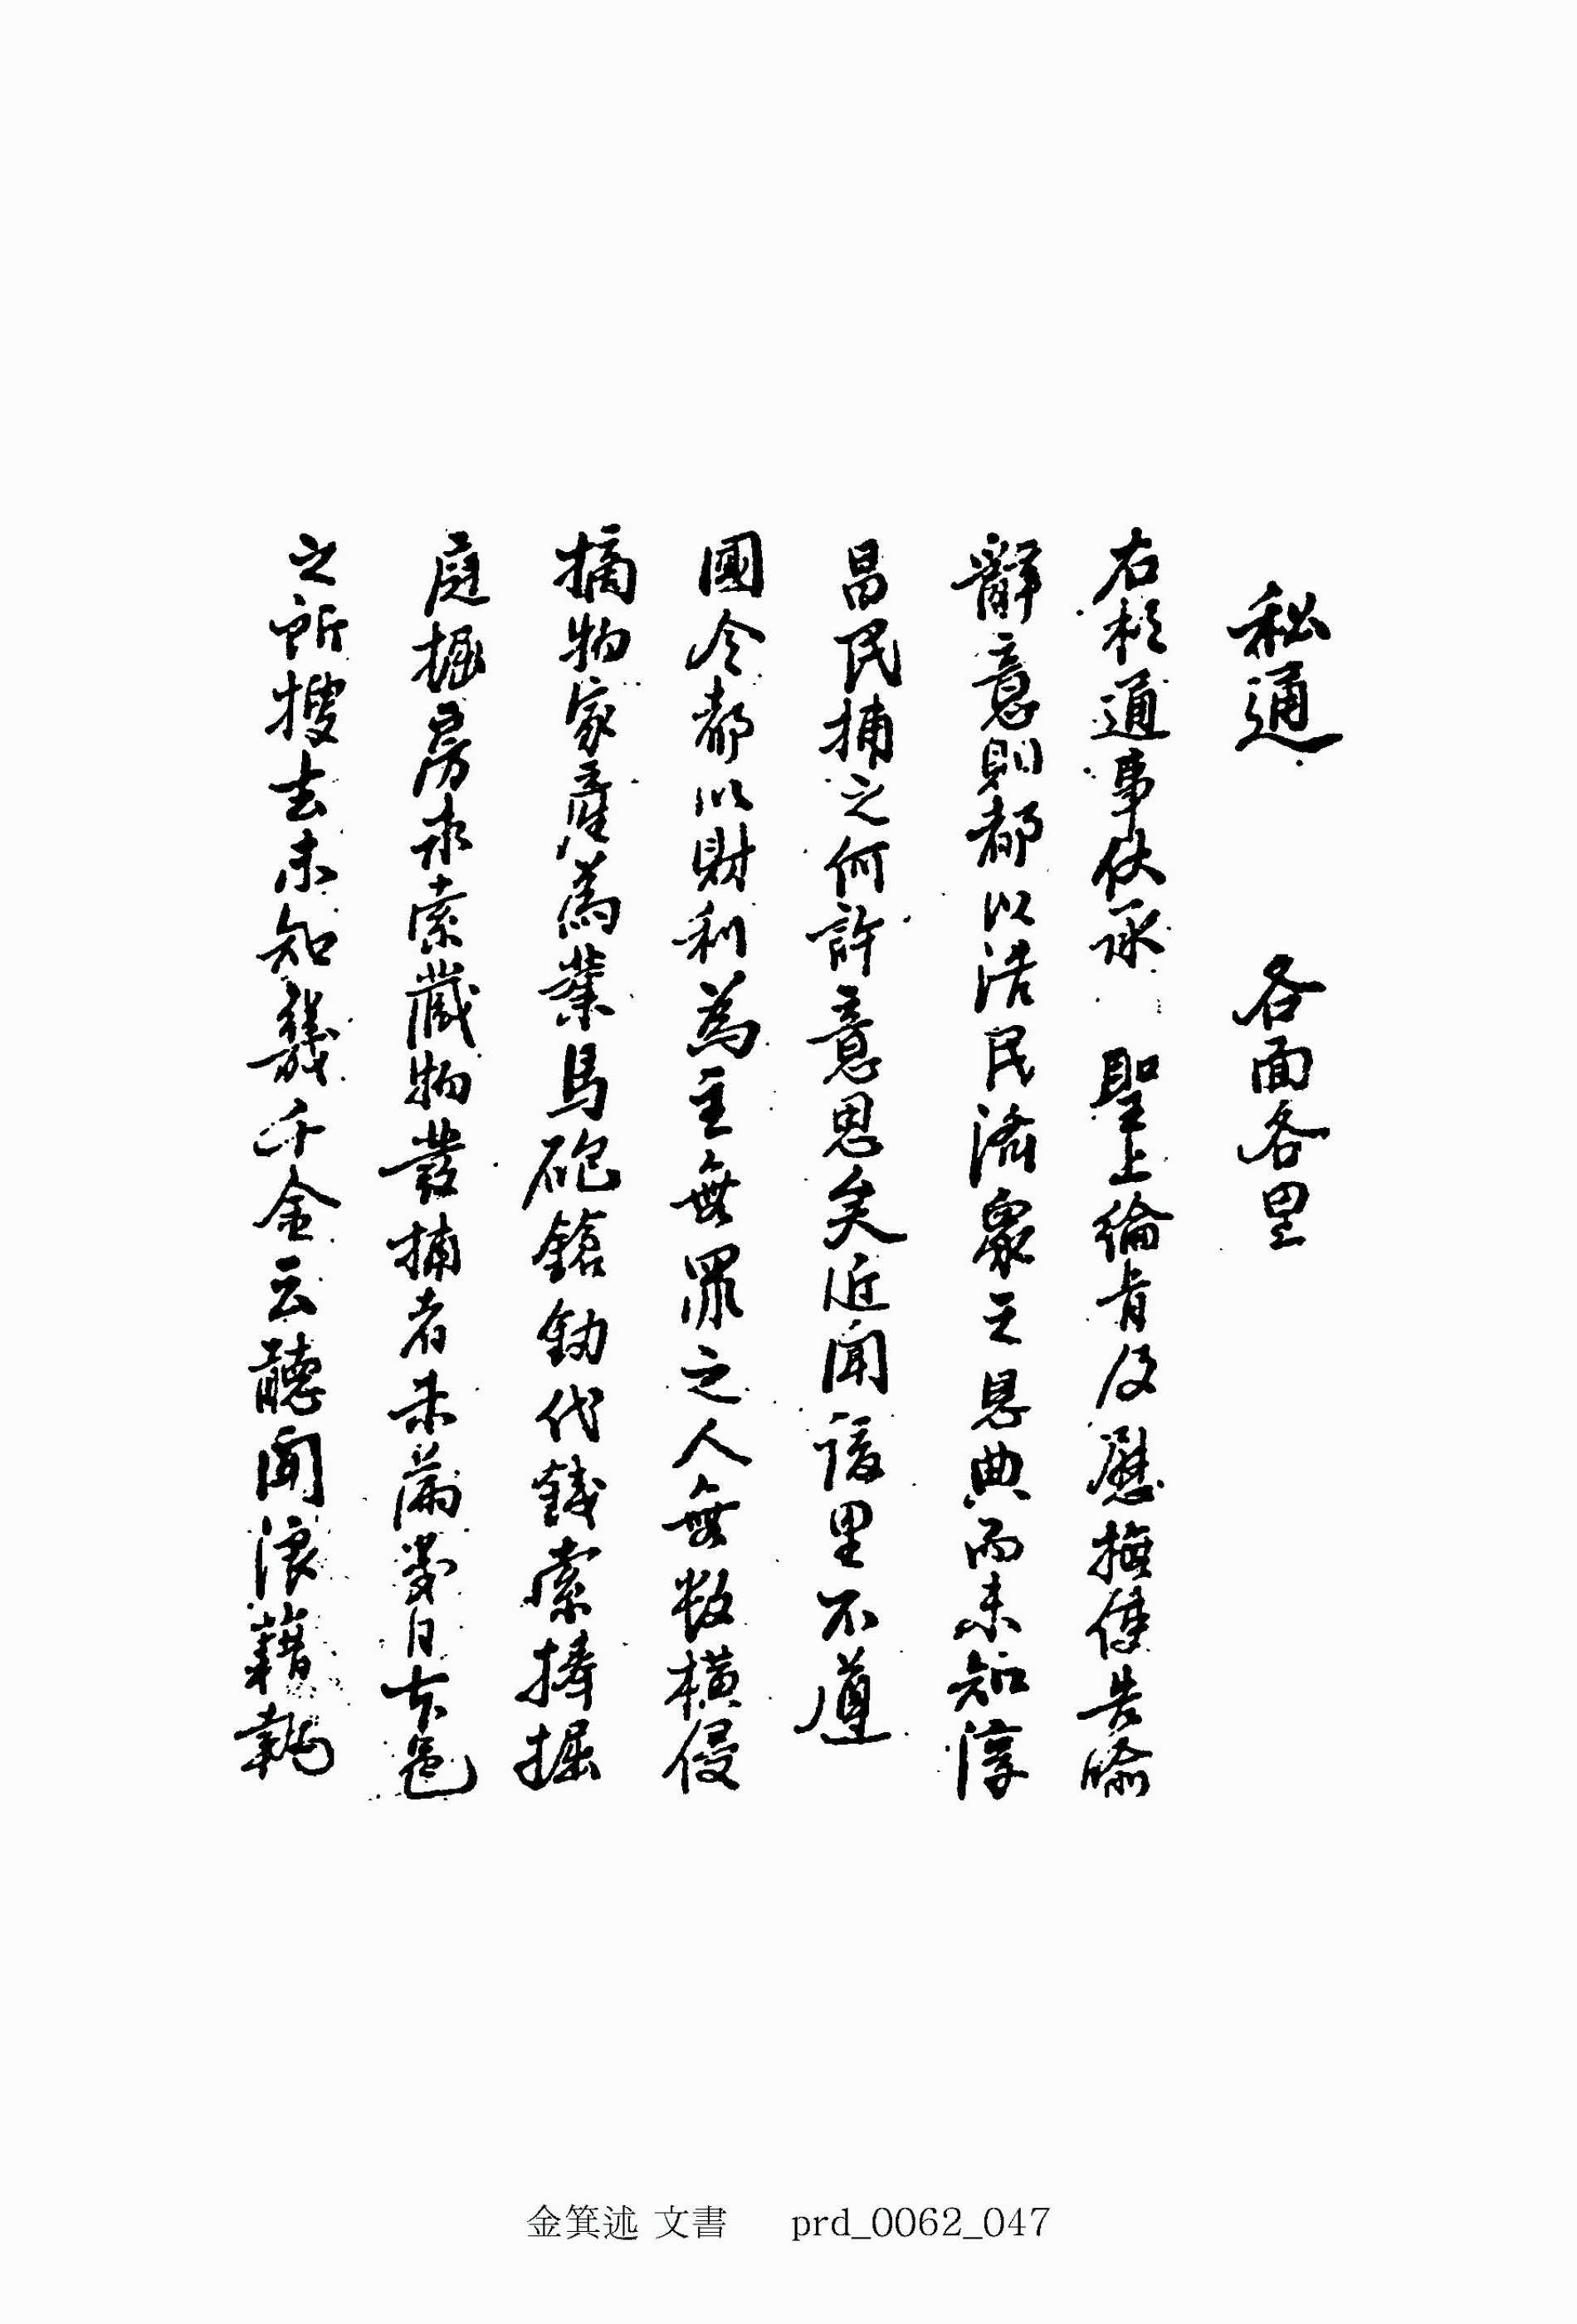 私通 各面各里
右敬通事伏承 聖上綸旨及慰撫使告喩
辭意則都以活民濟衆之恩典而未知淳
昌民捕之何許意思矣近聞該里不遵
國令都以財利爲主無罪之人無數橫侵
摘物家産爲業馬砲鎗釰代錢索捧掘
庭掘房永索藏物發捕者未滿夢日本邑
之所搜去未知幾千金云聽聞浪藉
金箕述 文書 prd_0062_047